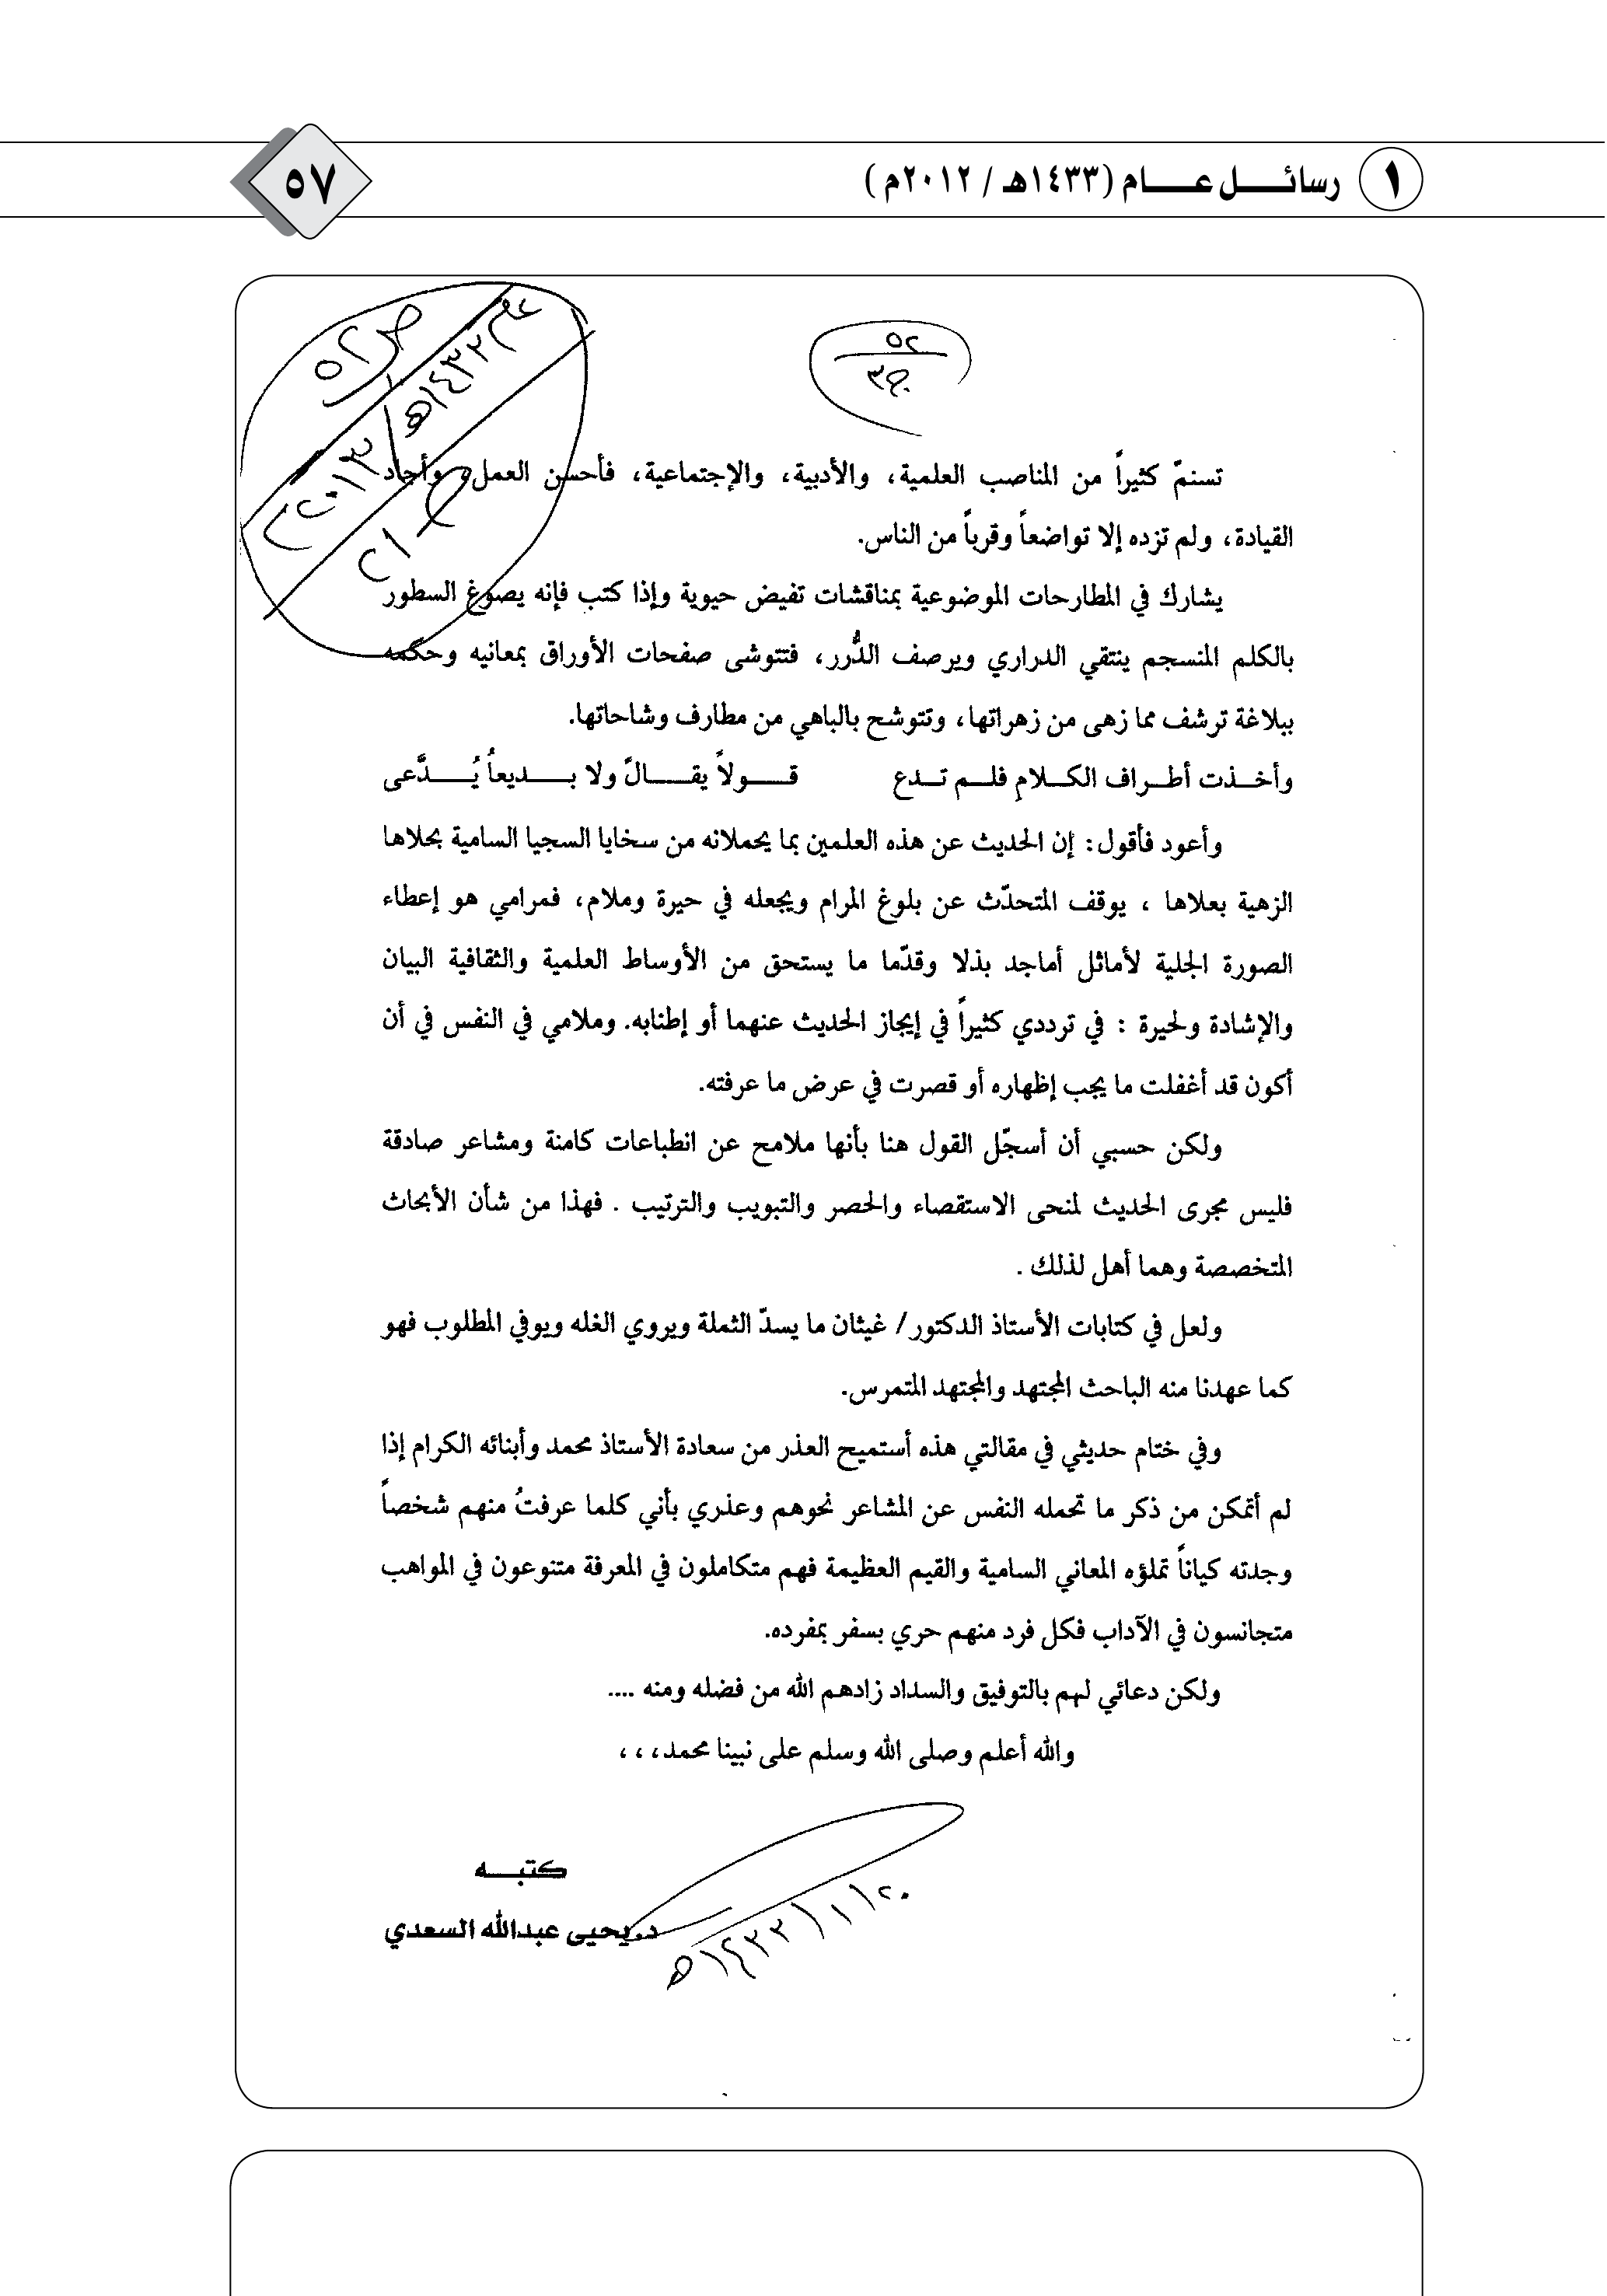 ١ رسائل عام (١٤٣٣هـ / ٢٠١٢م)
٥٧
٥٢
ج٣
ص ٥٢
تسنمّ كثيراً من المناصب العلمية، والأدبية، والإجتماعية، فأحسن العمل، وأجاد
القيادة، ولم تزده إلا تواضعاً وقرباً من الناس.
يشارك في المطارحات الموضوعية بمناقشات تفيض حيوية وإذا كتب فإنه يصوغ السطور
بالكلم المنسجم ينتقي الدراري ويرصف الدُّرر، فتتوشى صفحات الأوراق بمعانيه وحكمه
ببلاغة ترشف مما زهى من زهراتها، وتتوشح بالباهي من مطارف وشاحاتها.
وأخذت أطراف الكلامِ فلم تدع قولاً يقالً ولا بديعاً يُدَّعى
وأعود فأقول: إن الحديث عن هذه العلمين بما يحملانه من سخايا السجيا السامية بحلاها
الزهية بعلاها ، يوقف المتحدّث عن بلوغ المرام ويجعله في حيرة وملام، فمرامي هو إعطاء
الصورة الجلية لأماثل أماجد بذلا وقدّما ما يستحق من الأوساط العلمية والثقافية البيان
والإشادة ولحيرة : في ترددي كثيراً في إيجاز الحديث عنهما أو إطنابه. وملامي في النفس في أن
أكون قد أغفلت ما يجب إظهاره أو قصرت في عرض ما عرفته.
ولكن حسبي أن أسجّل القول هنا بأنها ملامح عن انطباعات كامنة ومشاعر صادقة
فليس مجرى الحديث لمنحى الاستقصاء والحصر والتبويب والترتيب . فهذا من شأن الأبحاث
المتخصصة وهما أهل لذلك .
ولعل في كتابات الأستاذ الدكتور/ غيثان ما يسدّ الثملة ويروي الغله ويوفي المطلوب فهو
كما عهدنا منه الباحث المجتهد والمجتهد المتمرس.
وفي ختام حديثي في مقالتي هذه أستميح العذر من سعادة الأستاذ محمد وأبنائه الكرام إذا
لم أتمكن من ذكر ما تحمله النفس عن المشاعر نحوهم وعذري بأني كلما عرفتُ منهم شخصاً
وجدته كياناً تملؤه المعاني السامية والقيم العظيمة فهم متكاملون في المعرفة متنوعون في المواهب
متجانسون في الآداب فكل فرد منهم حري بسفر بمفرده.
ولكن دعائي لهم بالتوفيق والسداد زادهم الله من فضله ومنه ....
والله أعلم وصلى الله وسلم على نبينا محمد،،،
كتبه
د.يحيى عبدالله السعدي